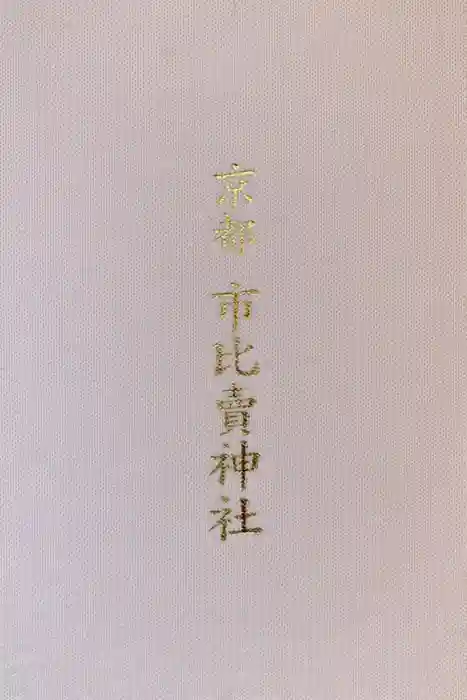 京都 市比賣神社